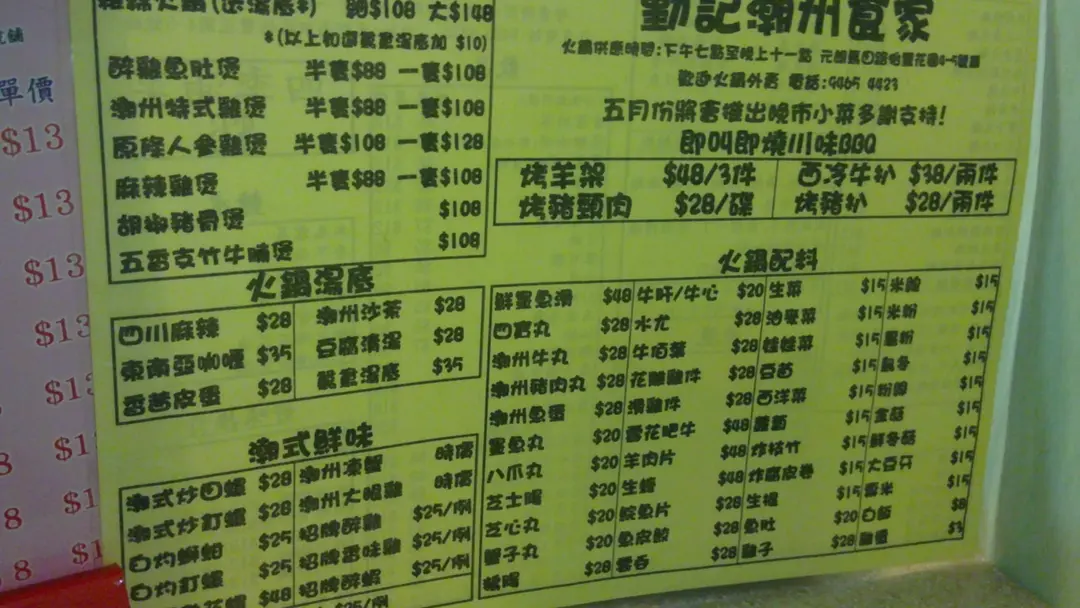 火鍋(送湯底*) 細$108 大$148
*(以上如選鴛鴦湯底加 $10)
醉雞魚肚煲 半賣$88 一賣$108
潮州特式雞煲 半賣$88 一賣$108
原條人參雞煲 半賣$108 一賣$128
麻辣雞煲 半賣$88 一賣$108
胡椒豬骨煲 $108
五香支竹牛腩煲 $108
火鍋湯底
四川麻辣 $28 潮州沙茶 $28
東南亞咖喱 $35 豆腐清湯 $28
香茜皮蛋 $28 鴛鴦湯底 $35
潮式鮮味
潮式炒田螺 $28 潮州凍蟹 時價
潮式炒釘螺 $28 潮州大眼雞 時價
白灼蜆蚶 $25 招牌醉雞 $25/例
白灼釘螺 $25 招牌香味雞 $25/例
花螺 $48 招牌醉蝦 $25/例
$25/例
勤記潮州食家
火鍋供應時間:下午七點至晚上十一點 元朗
歡迎火鍋外賣 電話:9465 4423
五月份將會推出晚市小菜多謝支持!
即叫即燒川味BBQ
烤羊架 $48/3件 西冷牛扒 $38/兩件
烤豬頸肉 $28/碟 烤豬扒 $28/兩件
火鍋配料
鮮墨魚滑 $48 牛肝/牛心 $20 生菜 $15 米線 $15
四寶丸 $28 水魷 $28 油麥菜 $15 米粉 $15
潮州牛丸 $28 牛佰葉 $28 娃娃菜 $15 $15
潮州豬肉丸 $28 花雕雞件 $28 豆苗 $15 $15
潮州魚蛋 $28 滑雞件 $28 西洋菜 $15 粉絲 $15
墨魚丸 $20 雪花肥牛 $48 蘿蔔 $15 金菇 $15
八爪丸 $20 羊肉片 $48 炸枝竹 $15 鮮冬菇 $15
芝士腸 $20 生蠔 $48 炸腐皮卷 $15 大豆芽 $15
芝心丸 $20 鯇魚片 $28 生根 $15 粟米 $15
蟹子丸 $20 魚皮餃 $28 魚肚 $20 白飯 $8
$28 雲吞 $28 $28 雞蛋 $3
單價
$13
$13
$13
$13